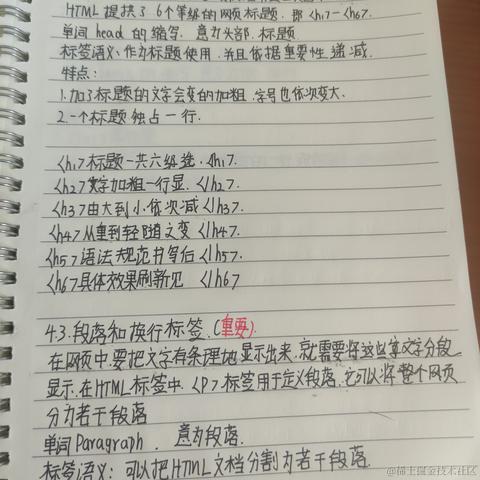 HTML提供了6个等级的网页标题,即<h1>-<h6>.
单词 head 的缩写.意为头部.标题
标签语义:作为标题使用,并且依据重要性递减.
特点:
1.加了标题的文字会变的加粗.字号也依次变大.
2.一个标题独占一行.
<h1>标题一共六级选.<h1>.
<h2>文字加粗一行显.</h2>.
<h3>由大到小依次减</h3>.
<h4>从重到轻随之变</h4>.
<h5>语法规范书写后</h5>.
<h6>具体效果刷新见 </h6>
4.3.段落和换行标签.(重要).
在网页中.要把文字有条理地显示出来.就需要将这些文字分段
显示.在HTML标签中.<P>.标签用于定义段落.它可以将整个网页
分为若干段落
单词Paragraph. 意为段落.
标签语义:可以把HTML文档分割为若干段落.
@稀土掘金技术社区